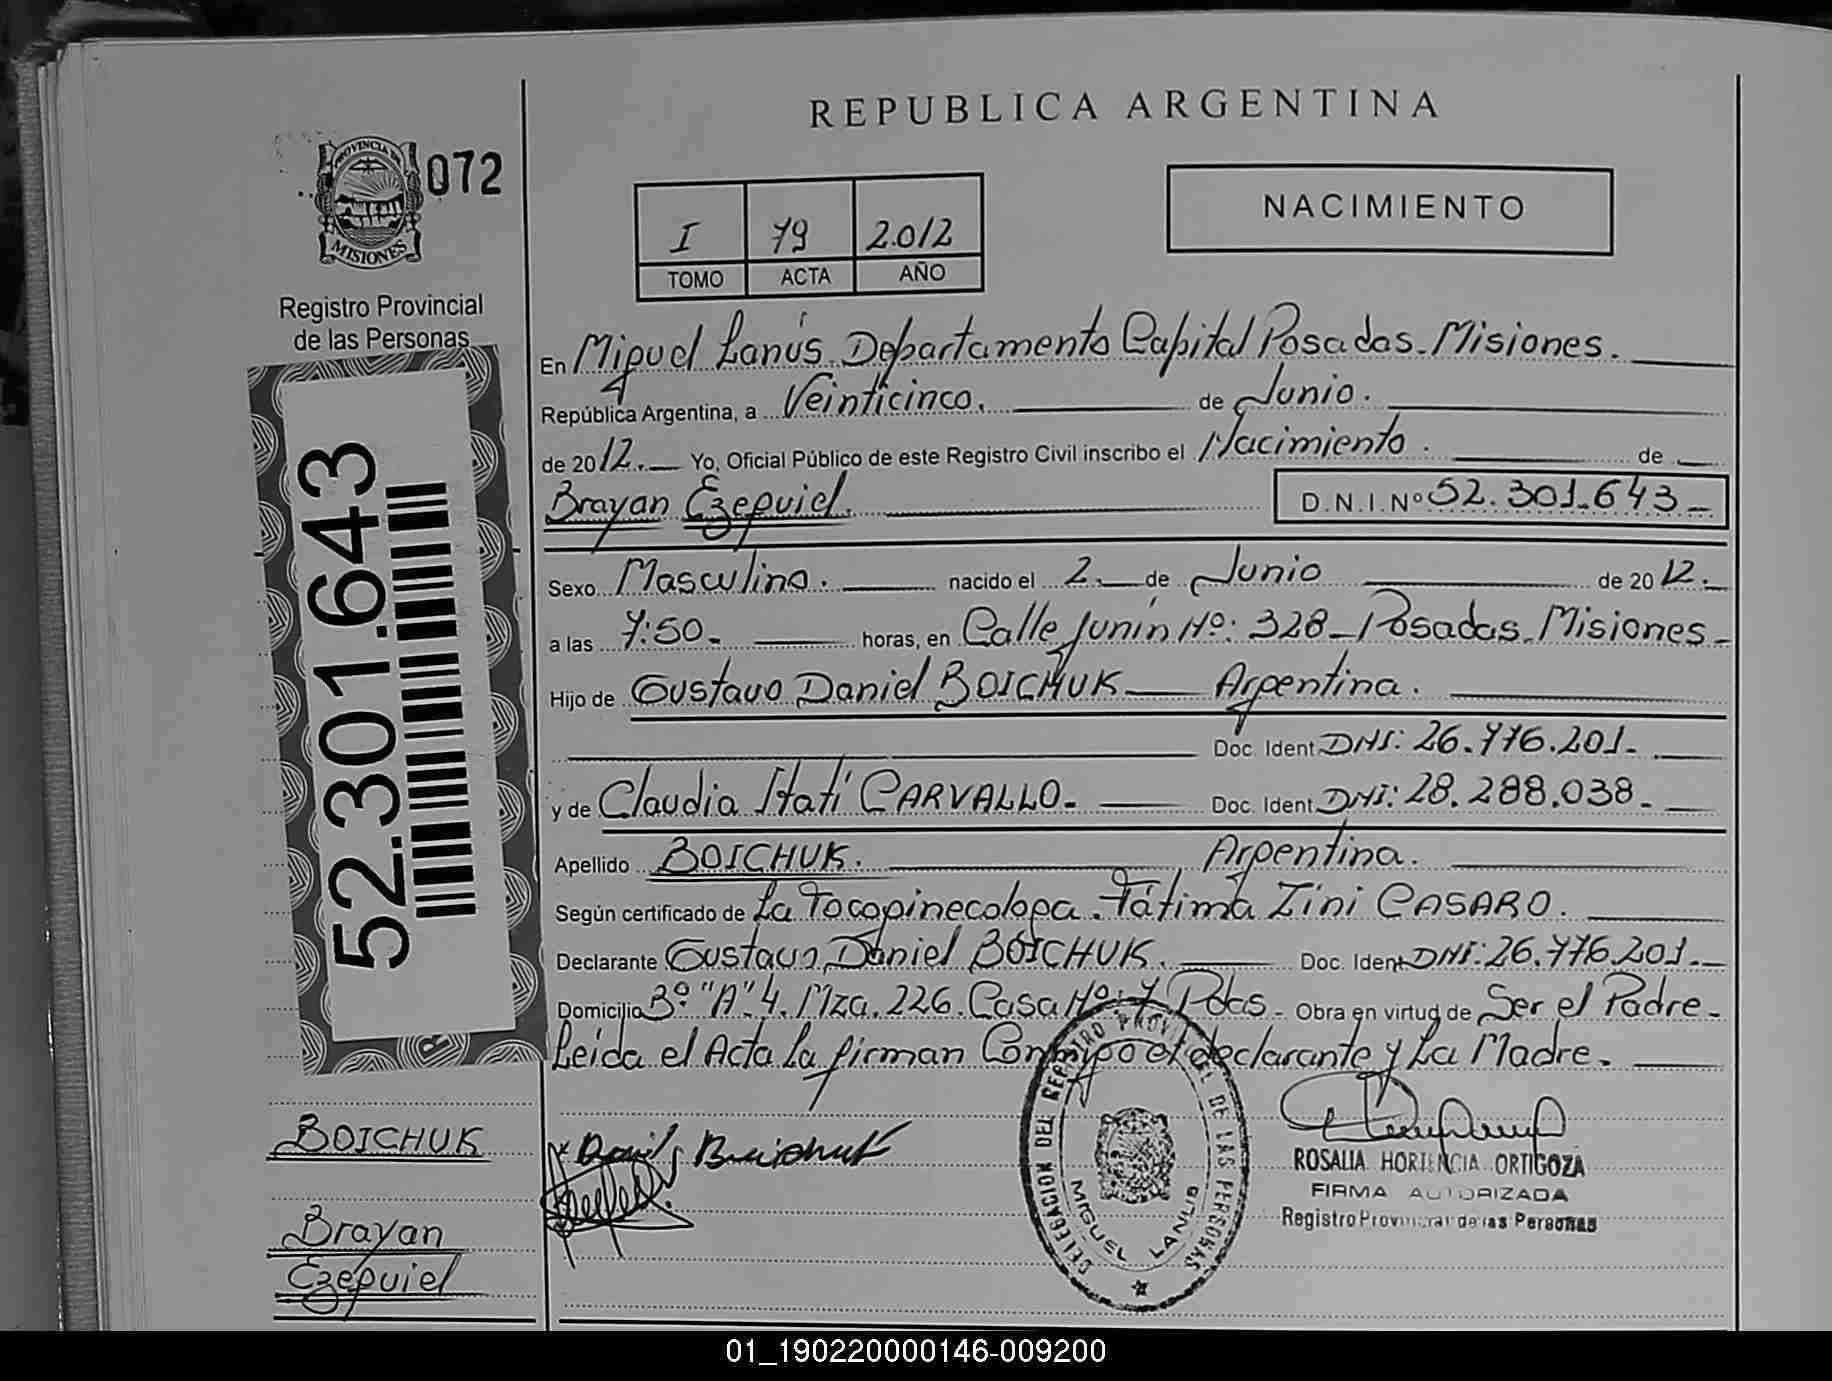 REPUBLICA ARGENTINA
PROVINCIA DE
MISIONES
072
Registro Provincial
de las Personas
I 79 2.012
TOMO ACTA AÑO
NACIMIENTO
En Miguel Lanús. Departamento Capital Posadas. Misiones.
República Argentina, a Veinticinco. de Junio.
de 2012. Yo, Oficial Público de este Registro Civil inscribo el Nacimiento. de
Brayan Ezequiel. D.N.I.Nº 52.301.643
Sexo Masculino. nacido el 2. de Junio de 2012.
a las 7:50. horas, en Calle Junín Nº: 328 Posadas. Misiones
Hijo de Gustavo Daniel BOICHUK Argentina.
Doc. Ident. DNI: 26.776.201.
y de Claudia Itatí CARVALLO. Doc. Ident. DNI: 28.288.038.
Apellido BOICHUK. Argentina.
Según certificado de La Tocoginecologa. Fátima Zini CASARO.
Declarante Gustavo Daniel BOICHUK. Doc. Ident DNI: 26.776.201.
Domicilio 3º "A" 4. Mza. 226. Casa Nº: 7 Pdas. Obra en virtud de Ser el Padre.
Leída el Acta La firman Conmigo el declarante y La Madre.
52.301.643
BOICHUK
Brayan
Ezequiel
DELEGACION DEL REGISTRO PROVINCIAL DE LAS PERSONAS
MIGUEL LANUS
ROSALIA HORTENCIA ORTIGOZA
FIRMA AUTORIZADA
Registro Provincial de las Personas
01_190220000146-009200